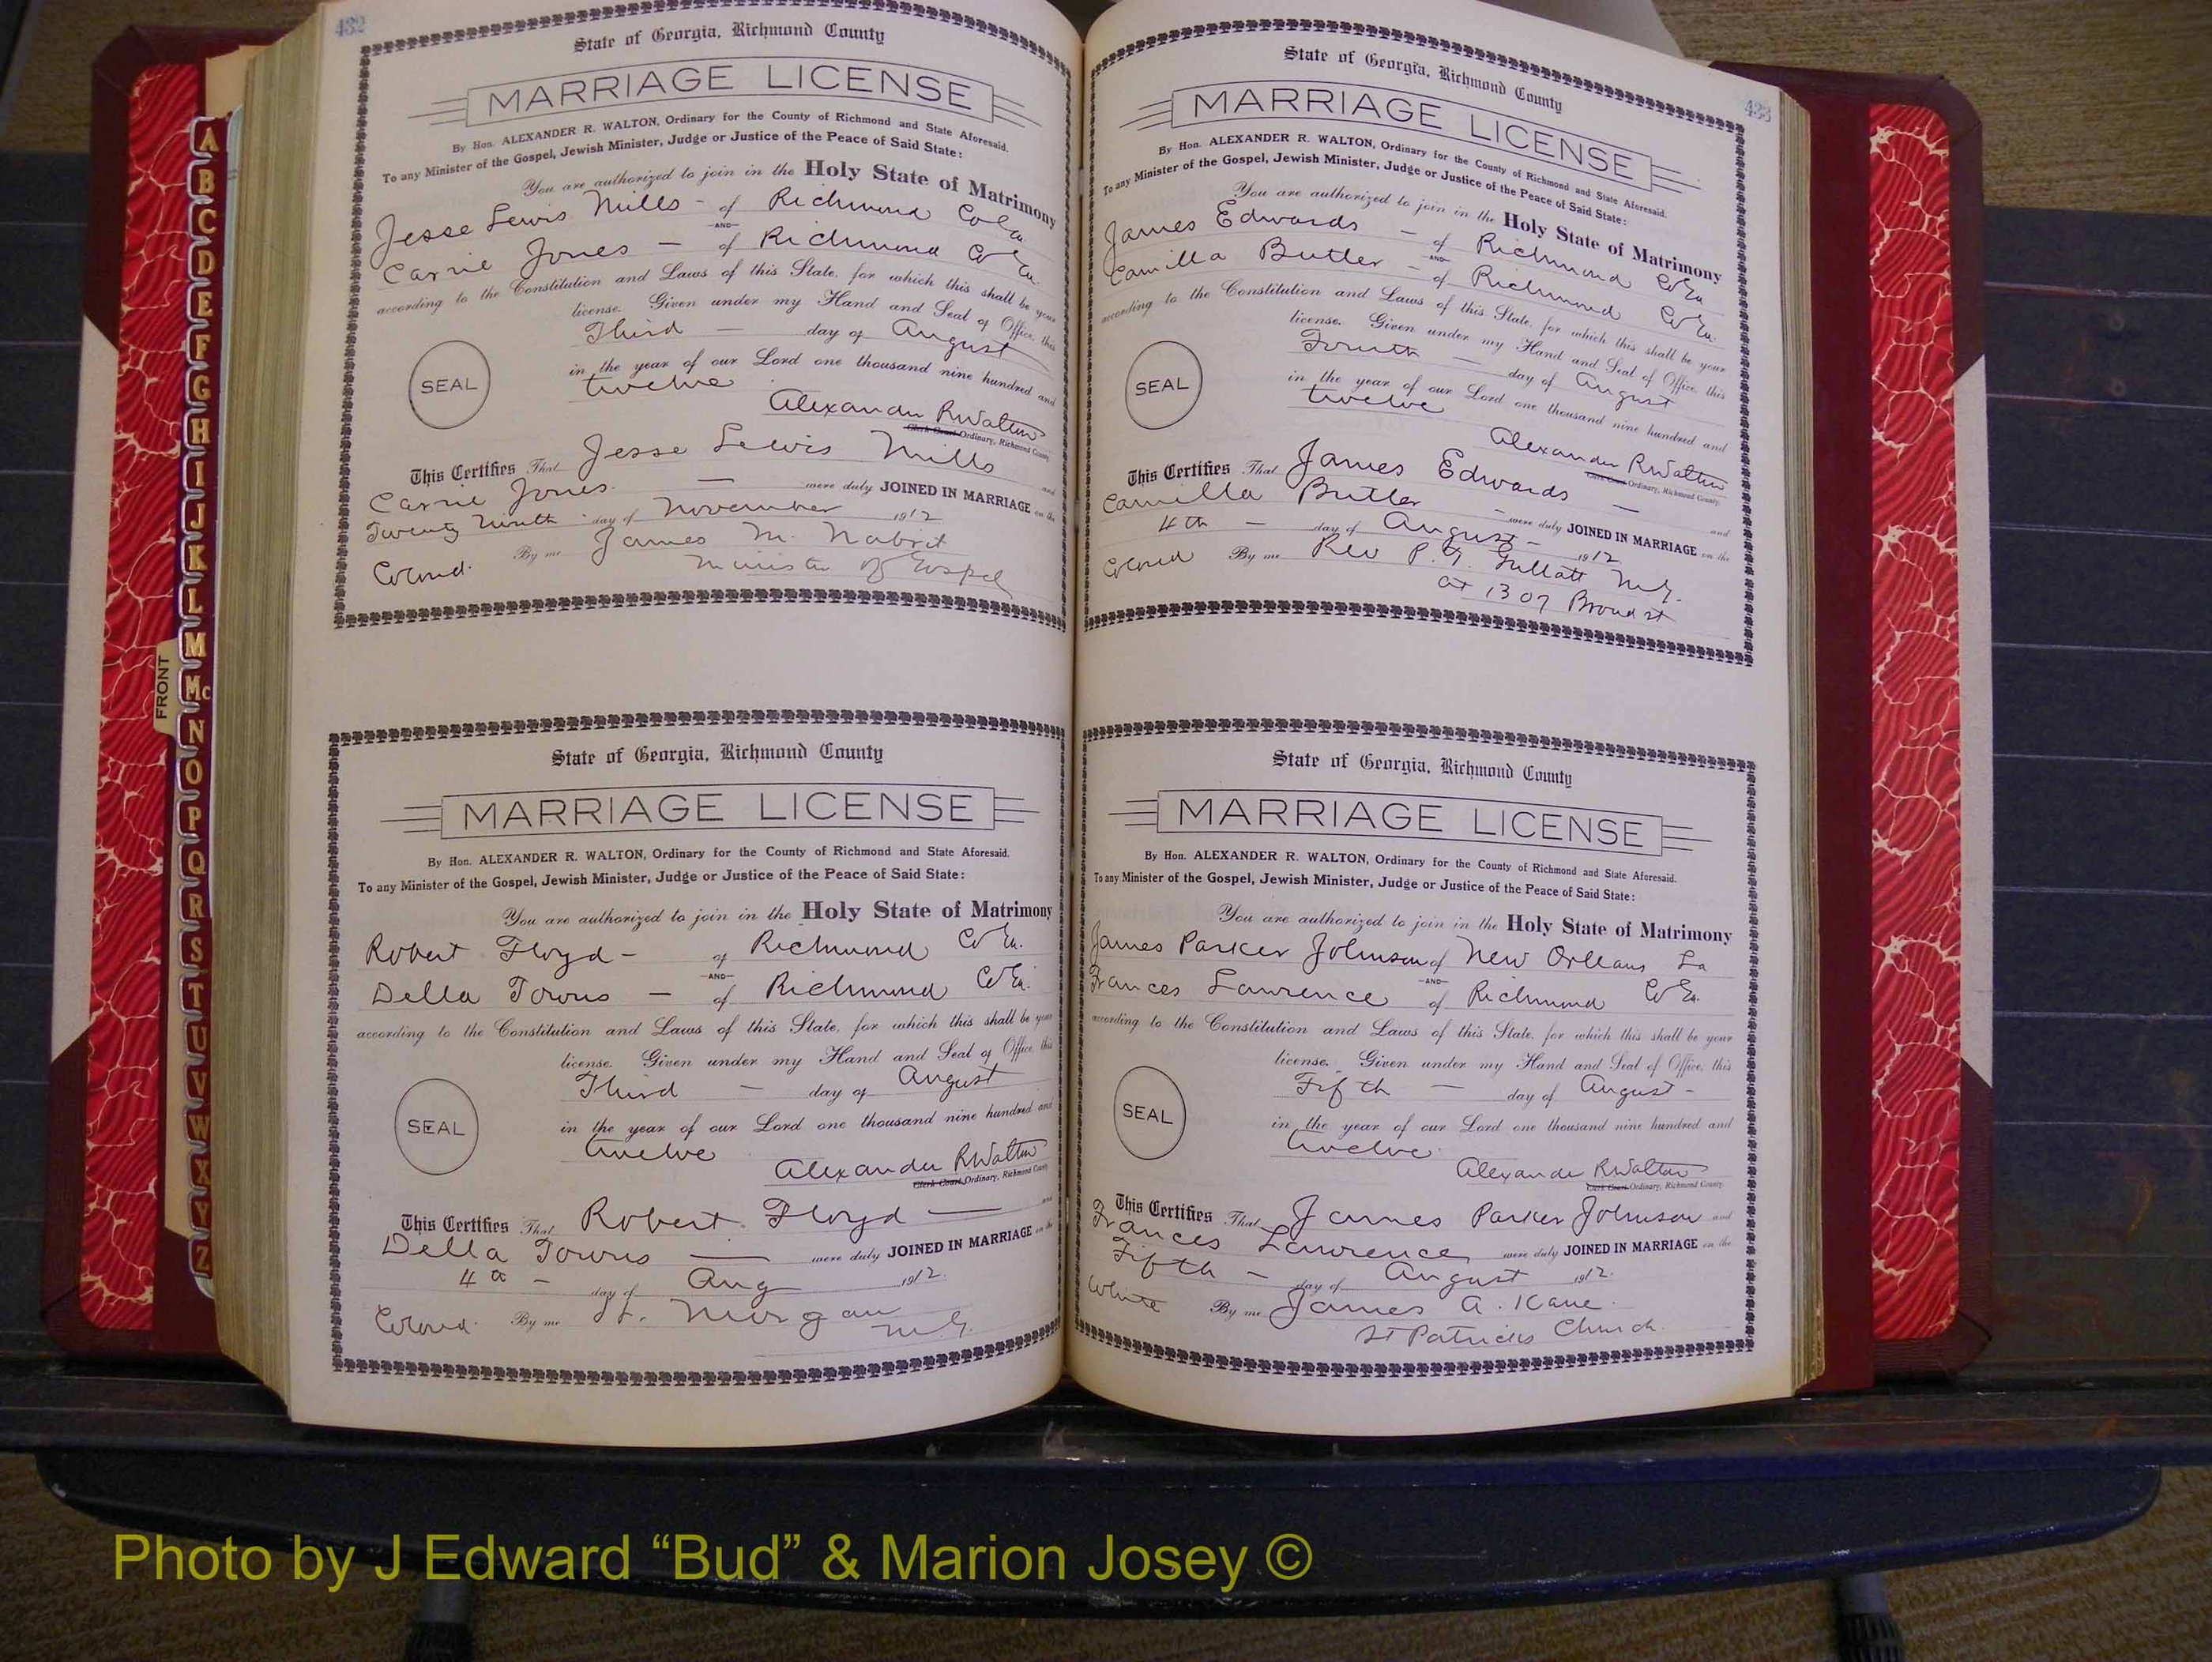 432
State of Georgia, Richmond County
MARRIAGE LICENSE
By Hon. ALEXANDER R. WALTON, Ordinary for the County of Richmond and State Aforesaid.
To any Minister of the Gospel, Jewish Minister, Judge or Justice of the Peace of Said State:
You are authorized to join in the Holy State of Matrimony
Jesse Lewis Mills - of Richmond Co Ga
AND
Carrie Jones - of Richmond Co Ga.
according to the Constitution and Laws of this State, for which this shall be your
license. Given under my Hand and Seal of Office, this
Third - day of August
in the year of our Lord one thousand nine hundred and
twelve
SEAL
Alexander R Walton
Clerk Court Ordinary, Richmond County
This Certifies That Jesse Lewis Mills and
Carrie Jones. - were duly JOINED IN MARRIAGE on the
Twenty Ninth day of November 1912
Colored. By me James M. Nabrit
Minister of Gospel
State of Georgia, Richmond County
MARRIAGE LICENSE
By Hon. ALEXANDER R. WALTON, Ordinary for the County of Richmond and State Aforesaid.
To any Minister of the Gospel, Jewish Minister, Judge or Justice of the Peace of Said State:
You are authorized to join in the Holy State of Matrimony
Robert Floyd - of Richmond Co Ga.
AND
Della Towns - of Richmond Co Ga.
according to the Constitution and Laws of this State, for which this shall be your
license. Given under my Hand and Seal of Office, this
Third - day of August
in the year of our Lord one thousand nine hundred and
twelve
SEAL
Alexander R Walton
Clerk Court Ordinary, Richmond County
This Certifies That Robert Floyd - and
Della Towns - were duly JOINED IN MARRIAGE on the
4th - day of Aug 1912.
Colored. By me Morgan
M.G.
433
State of Georgia, Richmond County
MARRIAGE LICENSE
By Hon. ALEXANDER R. WALTON, Ordinary for the County of Richmond and State Aforesaid.
To any Minister of the Gospel, Jewish Minister, Judge or Justice of the Peace of Said State:
You are authorized to join in the Holy State of Matrimony
James Edwards - of Richmond Co Ga
AND
Camilla Butler - of Richmond Co Ga.
according to the Constitution and Laws of this State, for which this shall be your
license. Given under my Hand and Seal of Office, this
Fourth - day of August
in the year of our Lord one thousand nine hundred and
twelve
SEAL
Alexander R Walton
Clerk Court Ordinary, Richmond County
This Certifies That James Edwards - and
Camilla Butler - were duly JOINED IN MARRIAGE on the
4th - day of August - 1912
Colored By me Rev P. G. Gullatt M.G.
at 1307 Broad st
State of Georgia, Richmond County
MARRIAGE LICENSE
By Hon. ALEXANDER R. WALTON, Ordinary for the County of Richmond and State Aforesaid.
To any Minister of the Gospel, Jewish Minister, Judge or Justice of the Peace of Said State:
You are authorized to join in the Holy State of Matrimony
James Parker Johnson of New Orleans La
AND
Frances Lawrence of Richmond Co Ga.
according to the Constitution and Laws of this State, for which this shall be your
license. Given under my Hand and Seal of Office, this
Fifth - day of August -
in the year of our Lord one thousand nine hundred and
twelve
SEAL
Alexander R Walton
Clerk Court Ordinary, Richmond County
This Certifies That James Parker Johnson and
Frances Lawrence were duly JOINED IN MARRIAGE on the
Fifth - day of August 1912.
White By me James A. Kane.
St Patricks Church.
FRONT
A
B
C
D
E
F
G
H
I
J
K
L
M
Mc
N
O
P
Q
R
S
T
U
V
W
X
Y
Z
Photo by J Edward “Bud” & Marion Josey ©